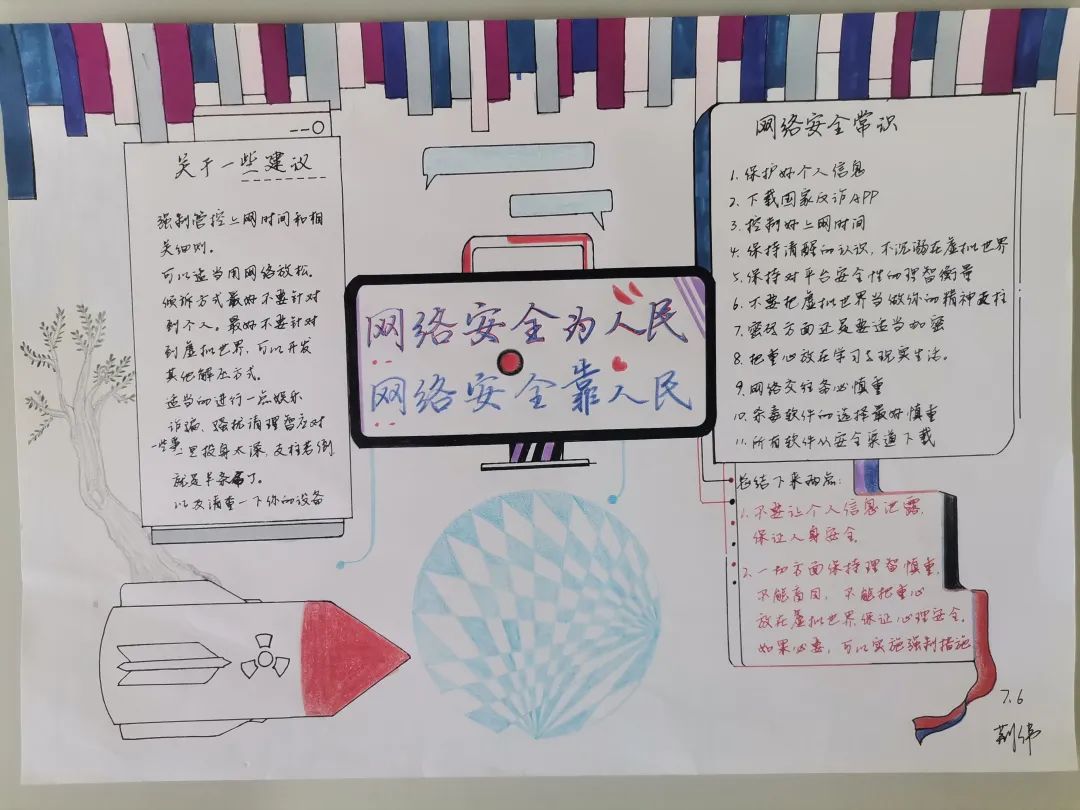 关于一些建议
强制管控上网时间和相
关细则。
可以适当用网络放松。
倾诉方式最好不要针对
到个人。最好不要针对
到虚拟世界,可以开发
其他解压方式。
适当的进行一点娱乐
诈骗、骚扰请理智应对
一些事一旦投身太深,支柱若倒
就是半条命了。
以及请查一下你的设备
网络安全为人民
网络安全靠人民
网络安全常识
1. 保护好个人信息
2. 下载国家反诈APP
3. 控制好上网时间
4. 保持清醒的认识,不沉溺在虚拟世界
5. 保持对平台安全性的理智衡量
6. 不要把虚拟世界当做你的精神支柱
7. 密码方面还是要适当加密
8. 把重心放在学习与现实生活。
9. 网络交往务必慎重
10. 杀毒软件的选择最好慎重
11. 所有软件从安全渠道下载
总结下来两点:
1. 不要让个人信息泄露,
保证人身安全。
2. 一切方面保持理智慎重,
不能盲目,不能把重心
放在虚拟世界,保证心理安全。
如果必要,可以实施强制措施
7.6
荆伟